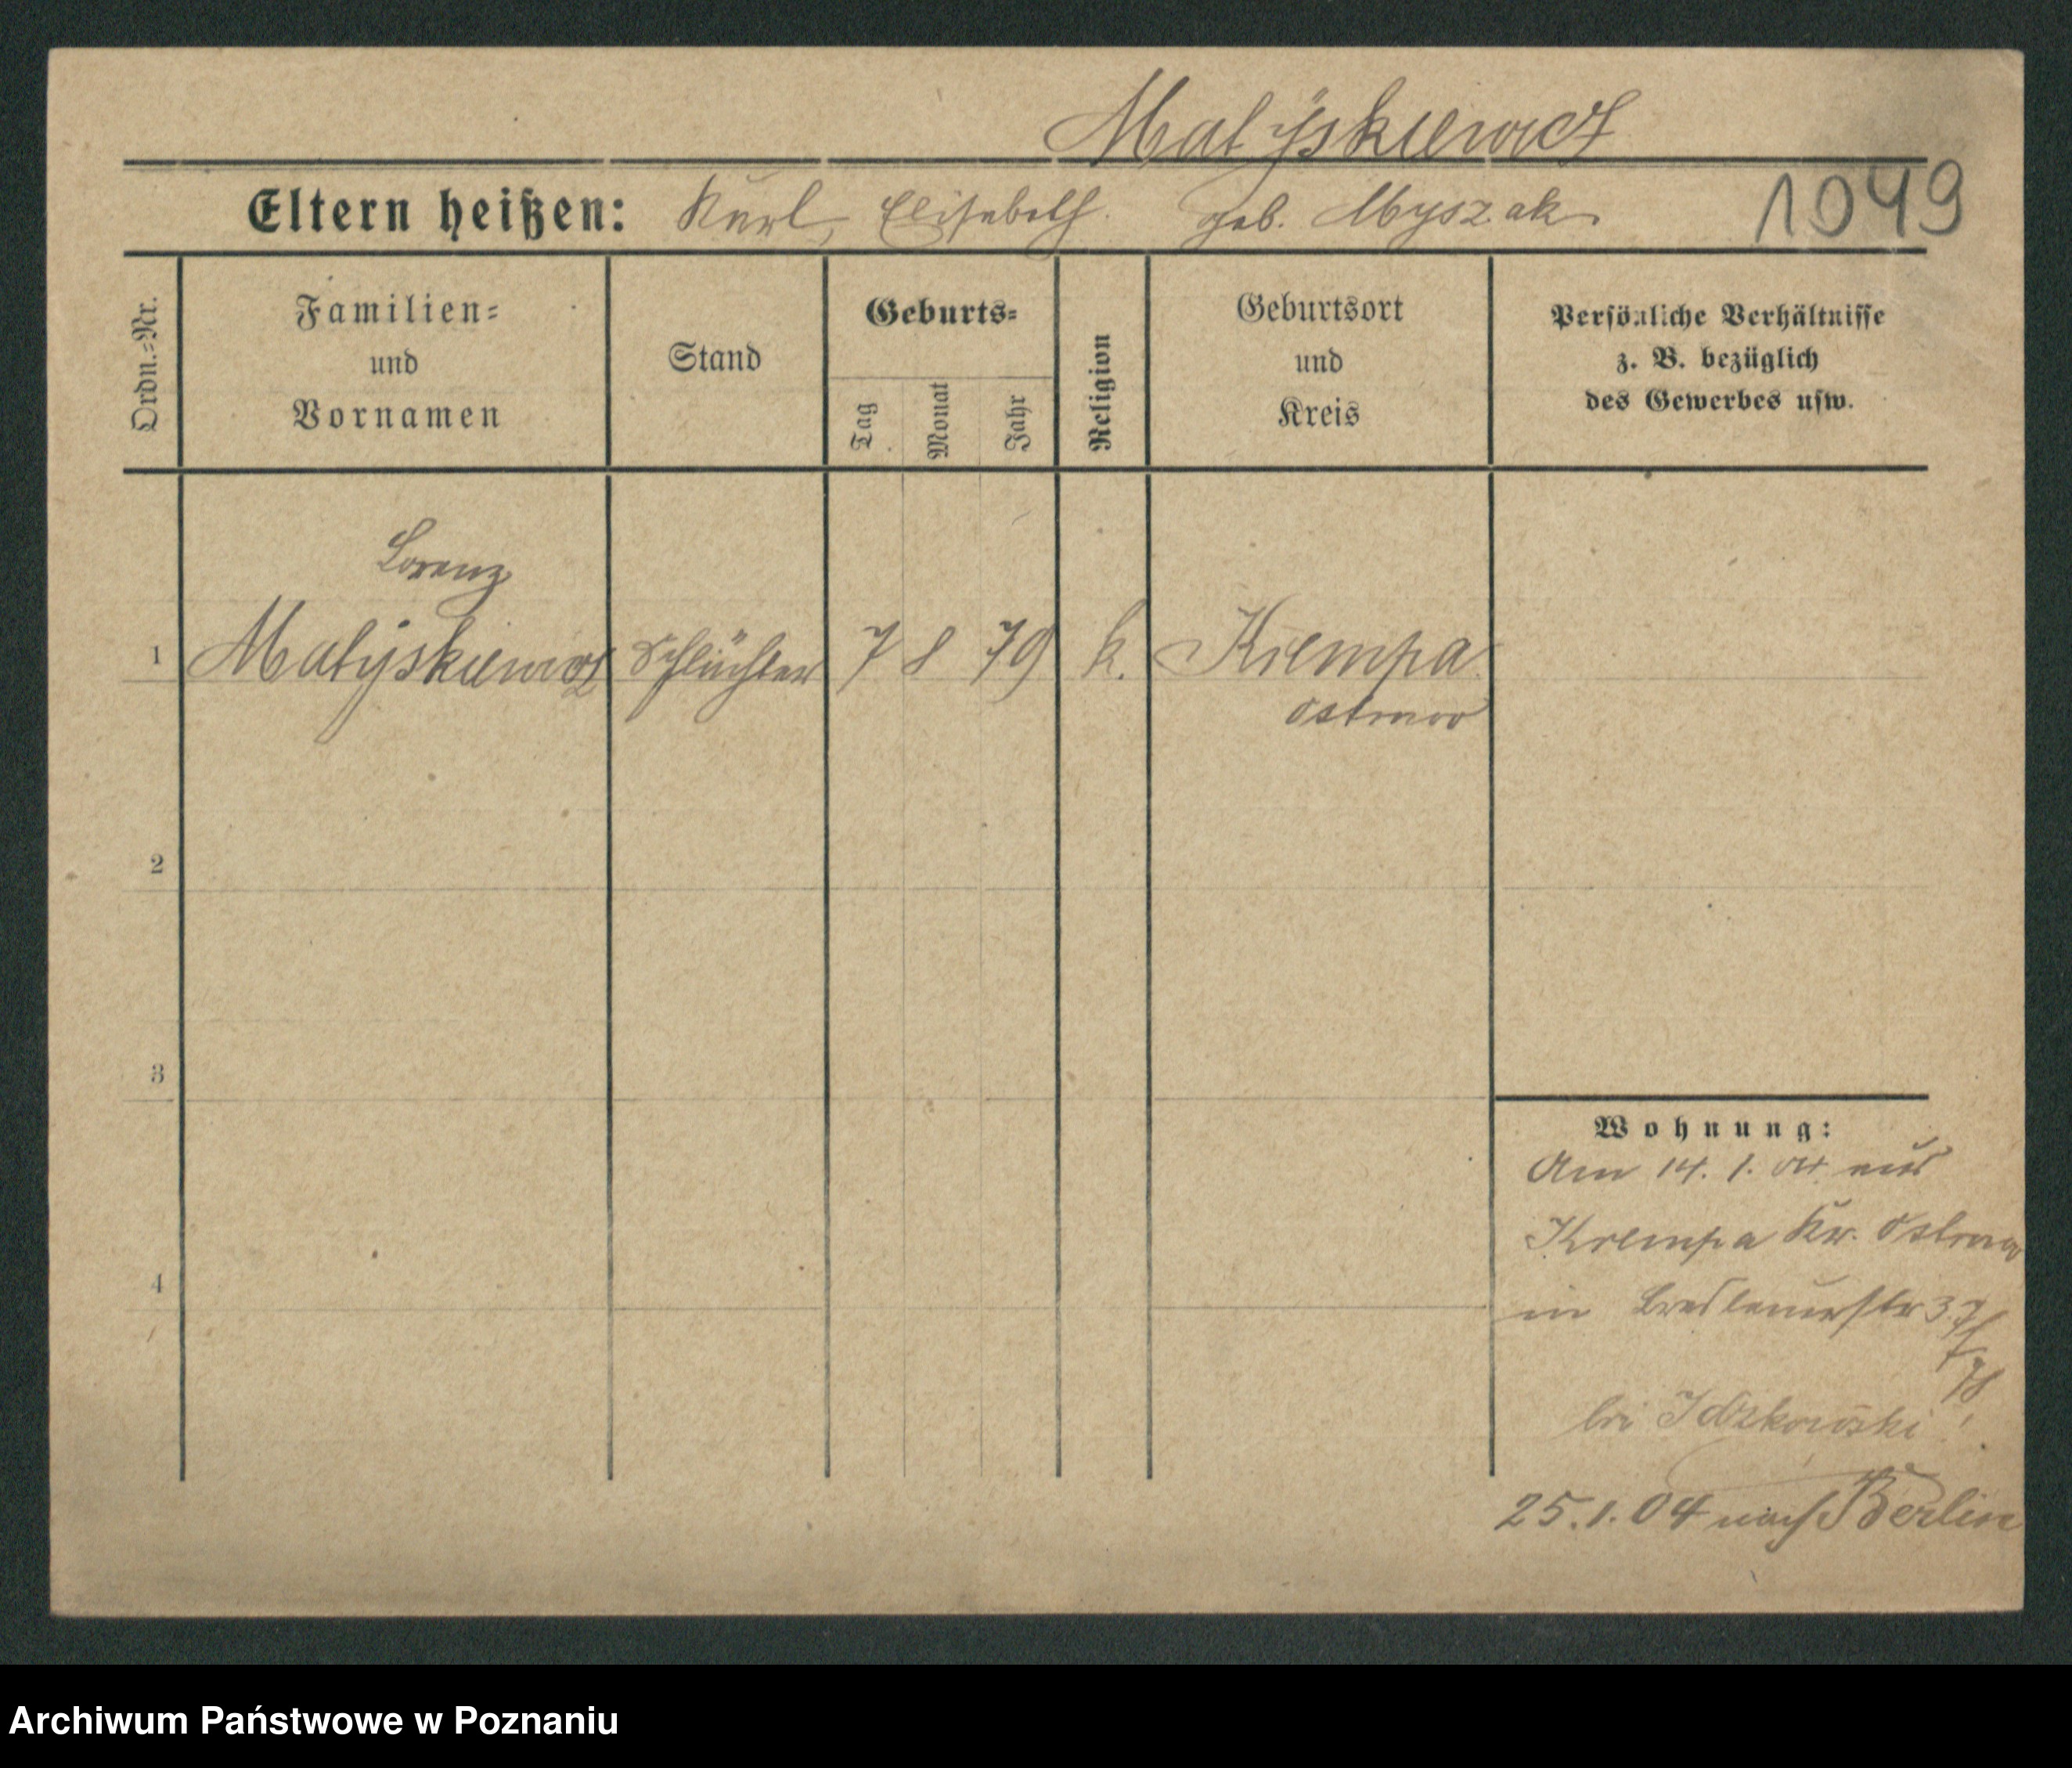 Matÿskiewicz
Eltern heißen: Karl, Elisabeth geb. Myszak
1049
Ordn.=Nr.
Familien=
und
Vornamen
Stand
Geburts=
Tag
Monat
Jahr
Religion
Geburtsort
und
Kreis
Persönliche Verhältnisse
z. B. bezüglich
des Gewerbes usw.
Lorenz
1 Matyskiewicz Schlächter 7 8 79 k. Krempa
Ostrowo
2
3
4
Wohnung:
Am 14. 1. 04 aus
Krempa Kr. Ostrowo
in Breslauerstr
bei Idzkowski
25. 1. 04 nach Berlin
Archiwum Państwowe w Poznaniu